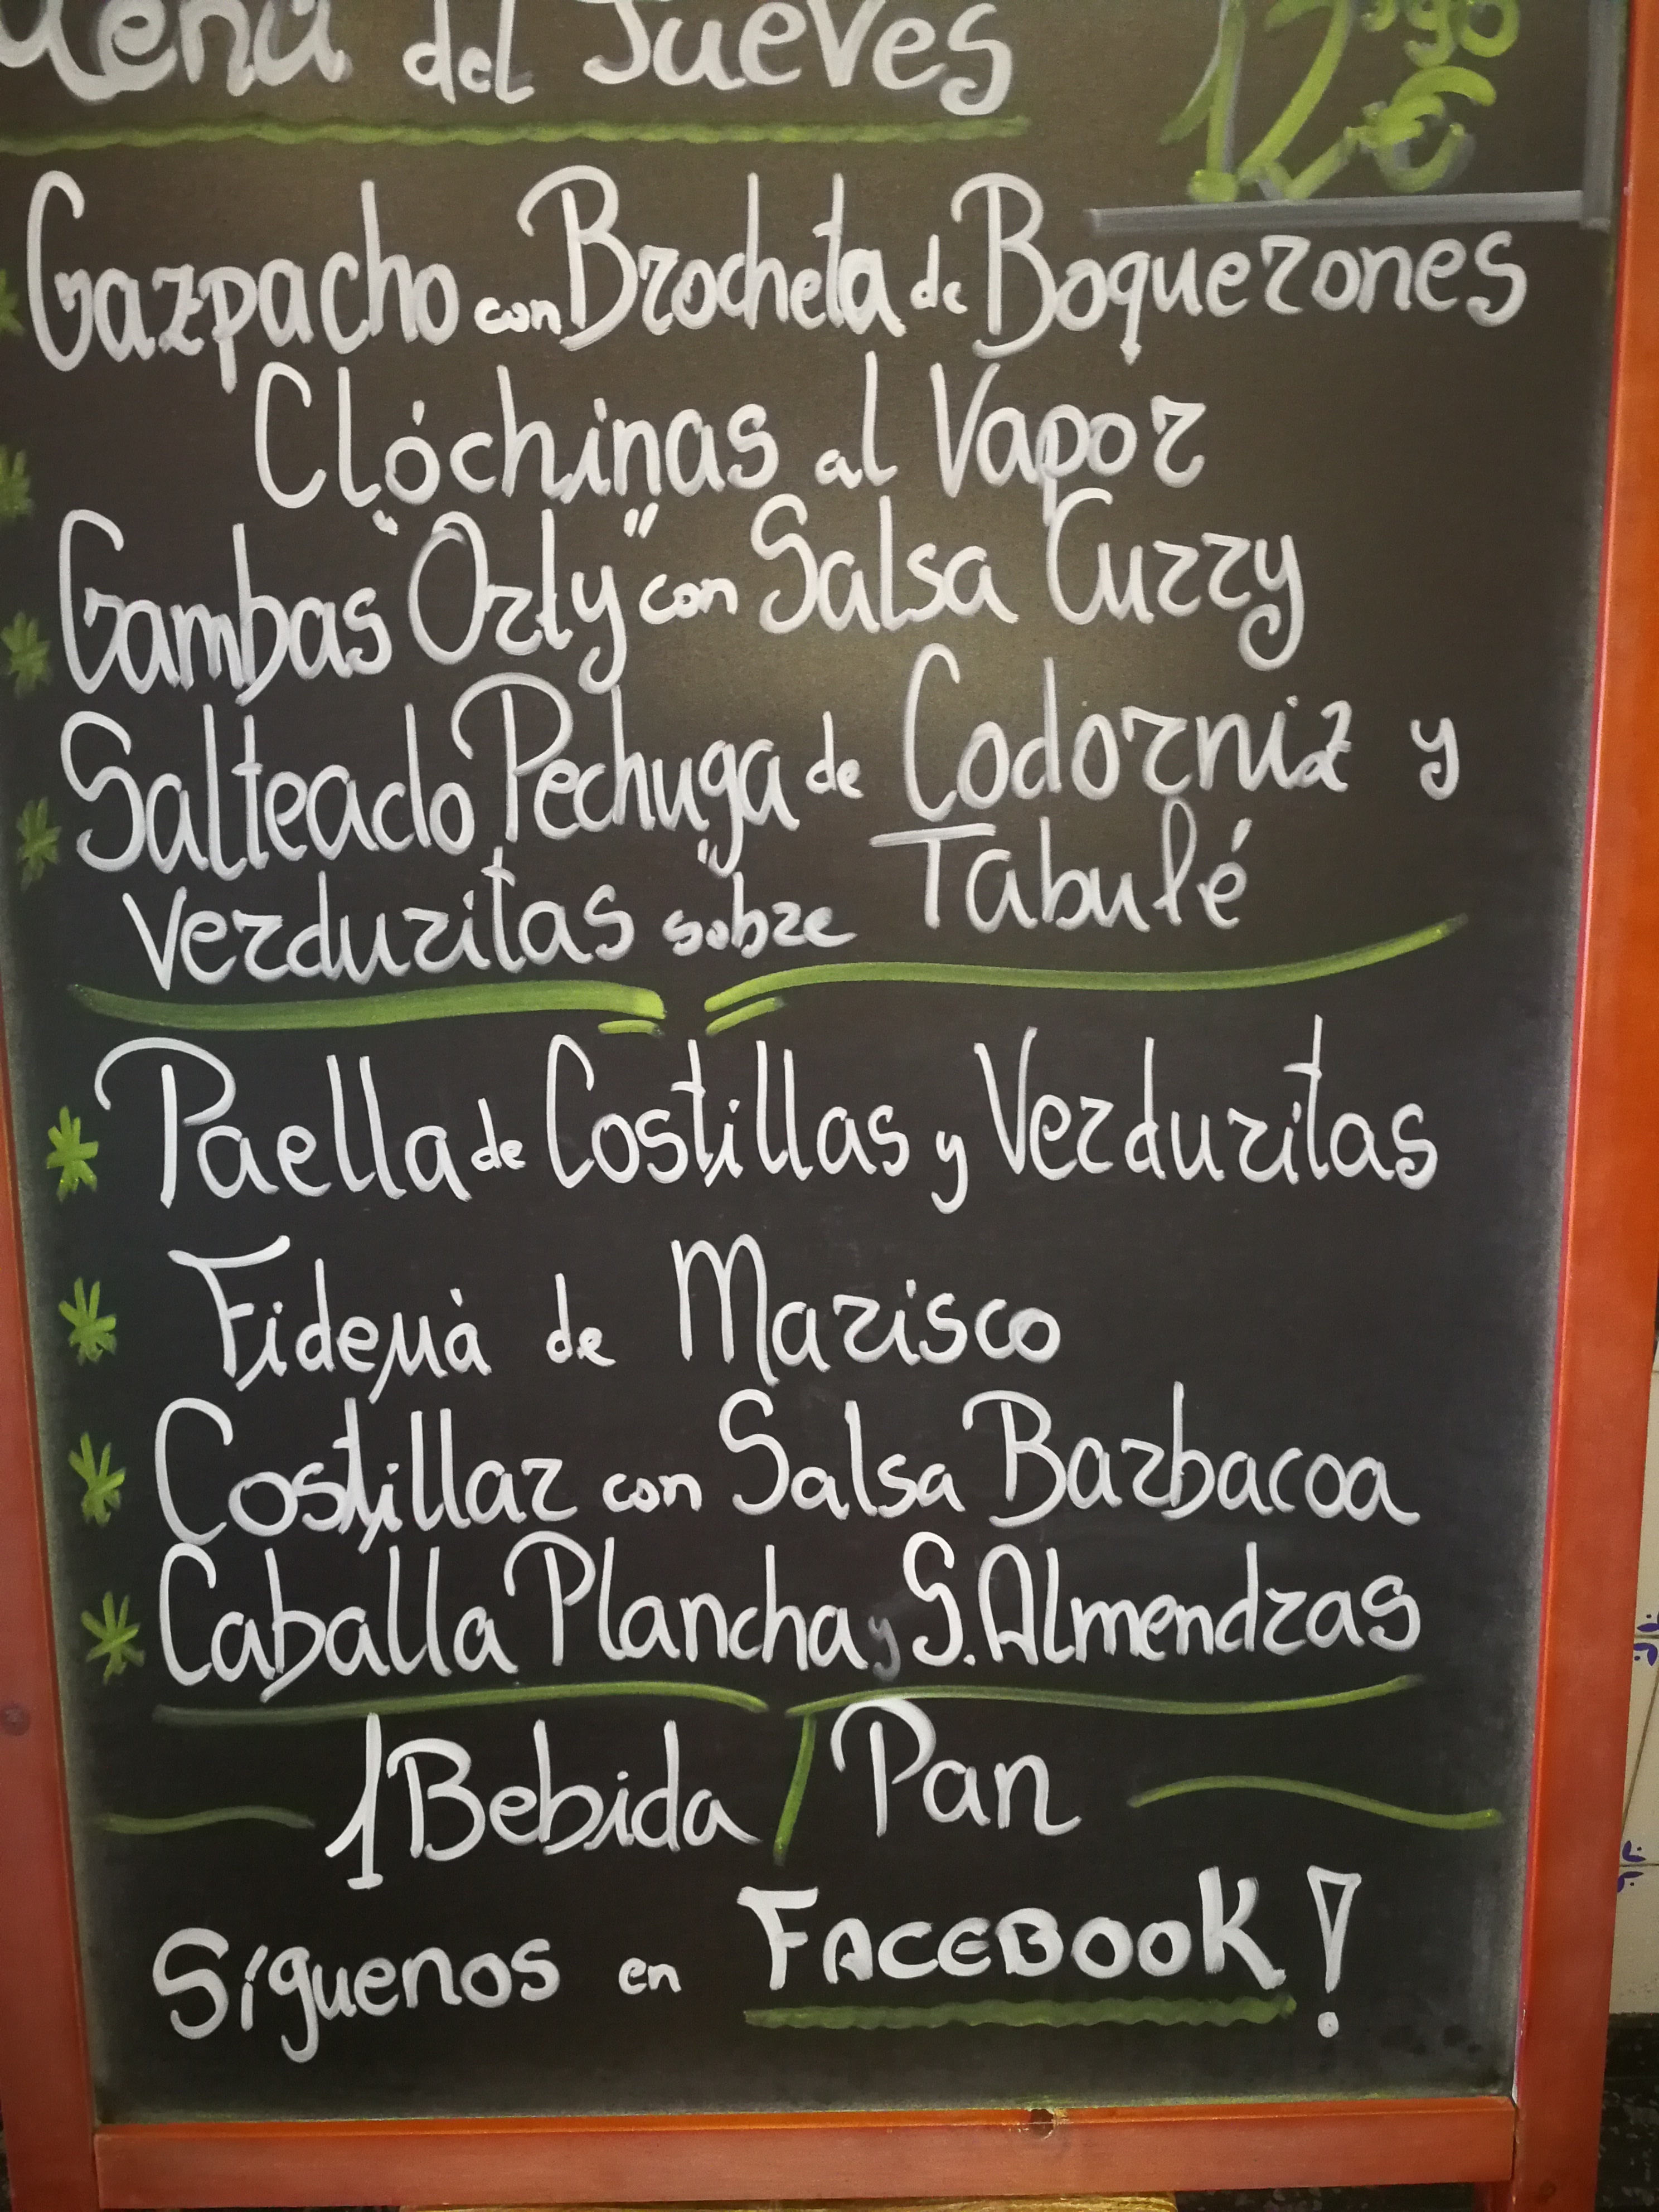 Menú del Jueves
12,90
€
Gazpacho con Brocheta de Boquerones
Clóchinas al Vapor
Gambas "Orly" con Salsa Curry
Salteado Pechuga de Codorniz y
Verduritas sobre "Tabulé
Paella de Costillas y Verduritas
Fideuà de Marisco
Costillar con Salsa Barbacoa
Caballa Plancha y S. Almendras
1 Bebida / Pan
Síguenos en FACEBOOK!